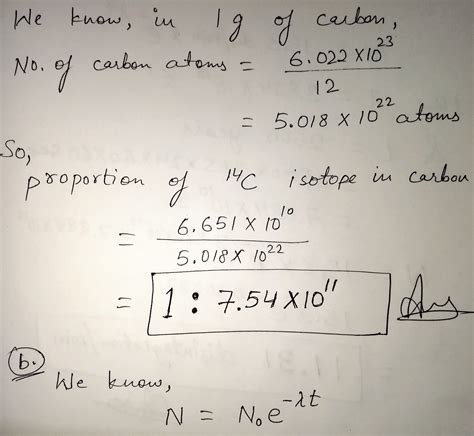 We know, in 1g of carbon,
No. of carbon atoms = 6.022 X10^23 / 12
= 5.018 X 10^22 atoms
So,
proportion of 14C isotope in carbon
= 6.651 X 10^10 / 5.018 X 10^22
= 1 : 7.54 X10^11 Ans
b. We know,
N = N₀e^-λt